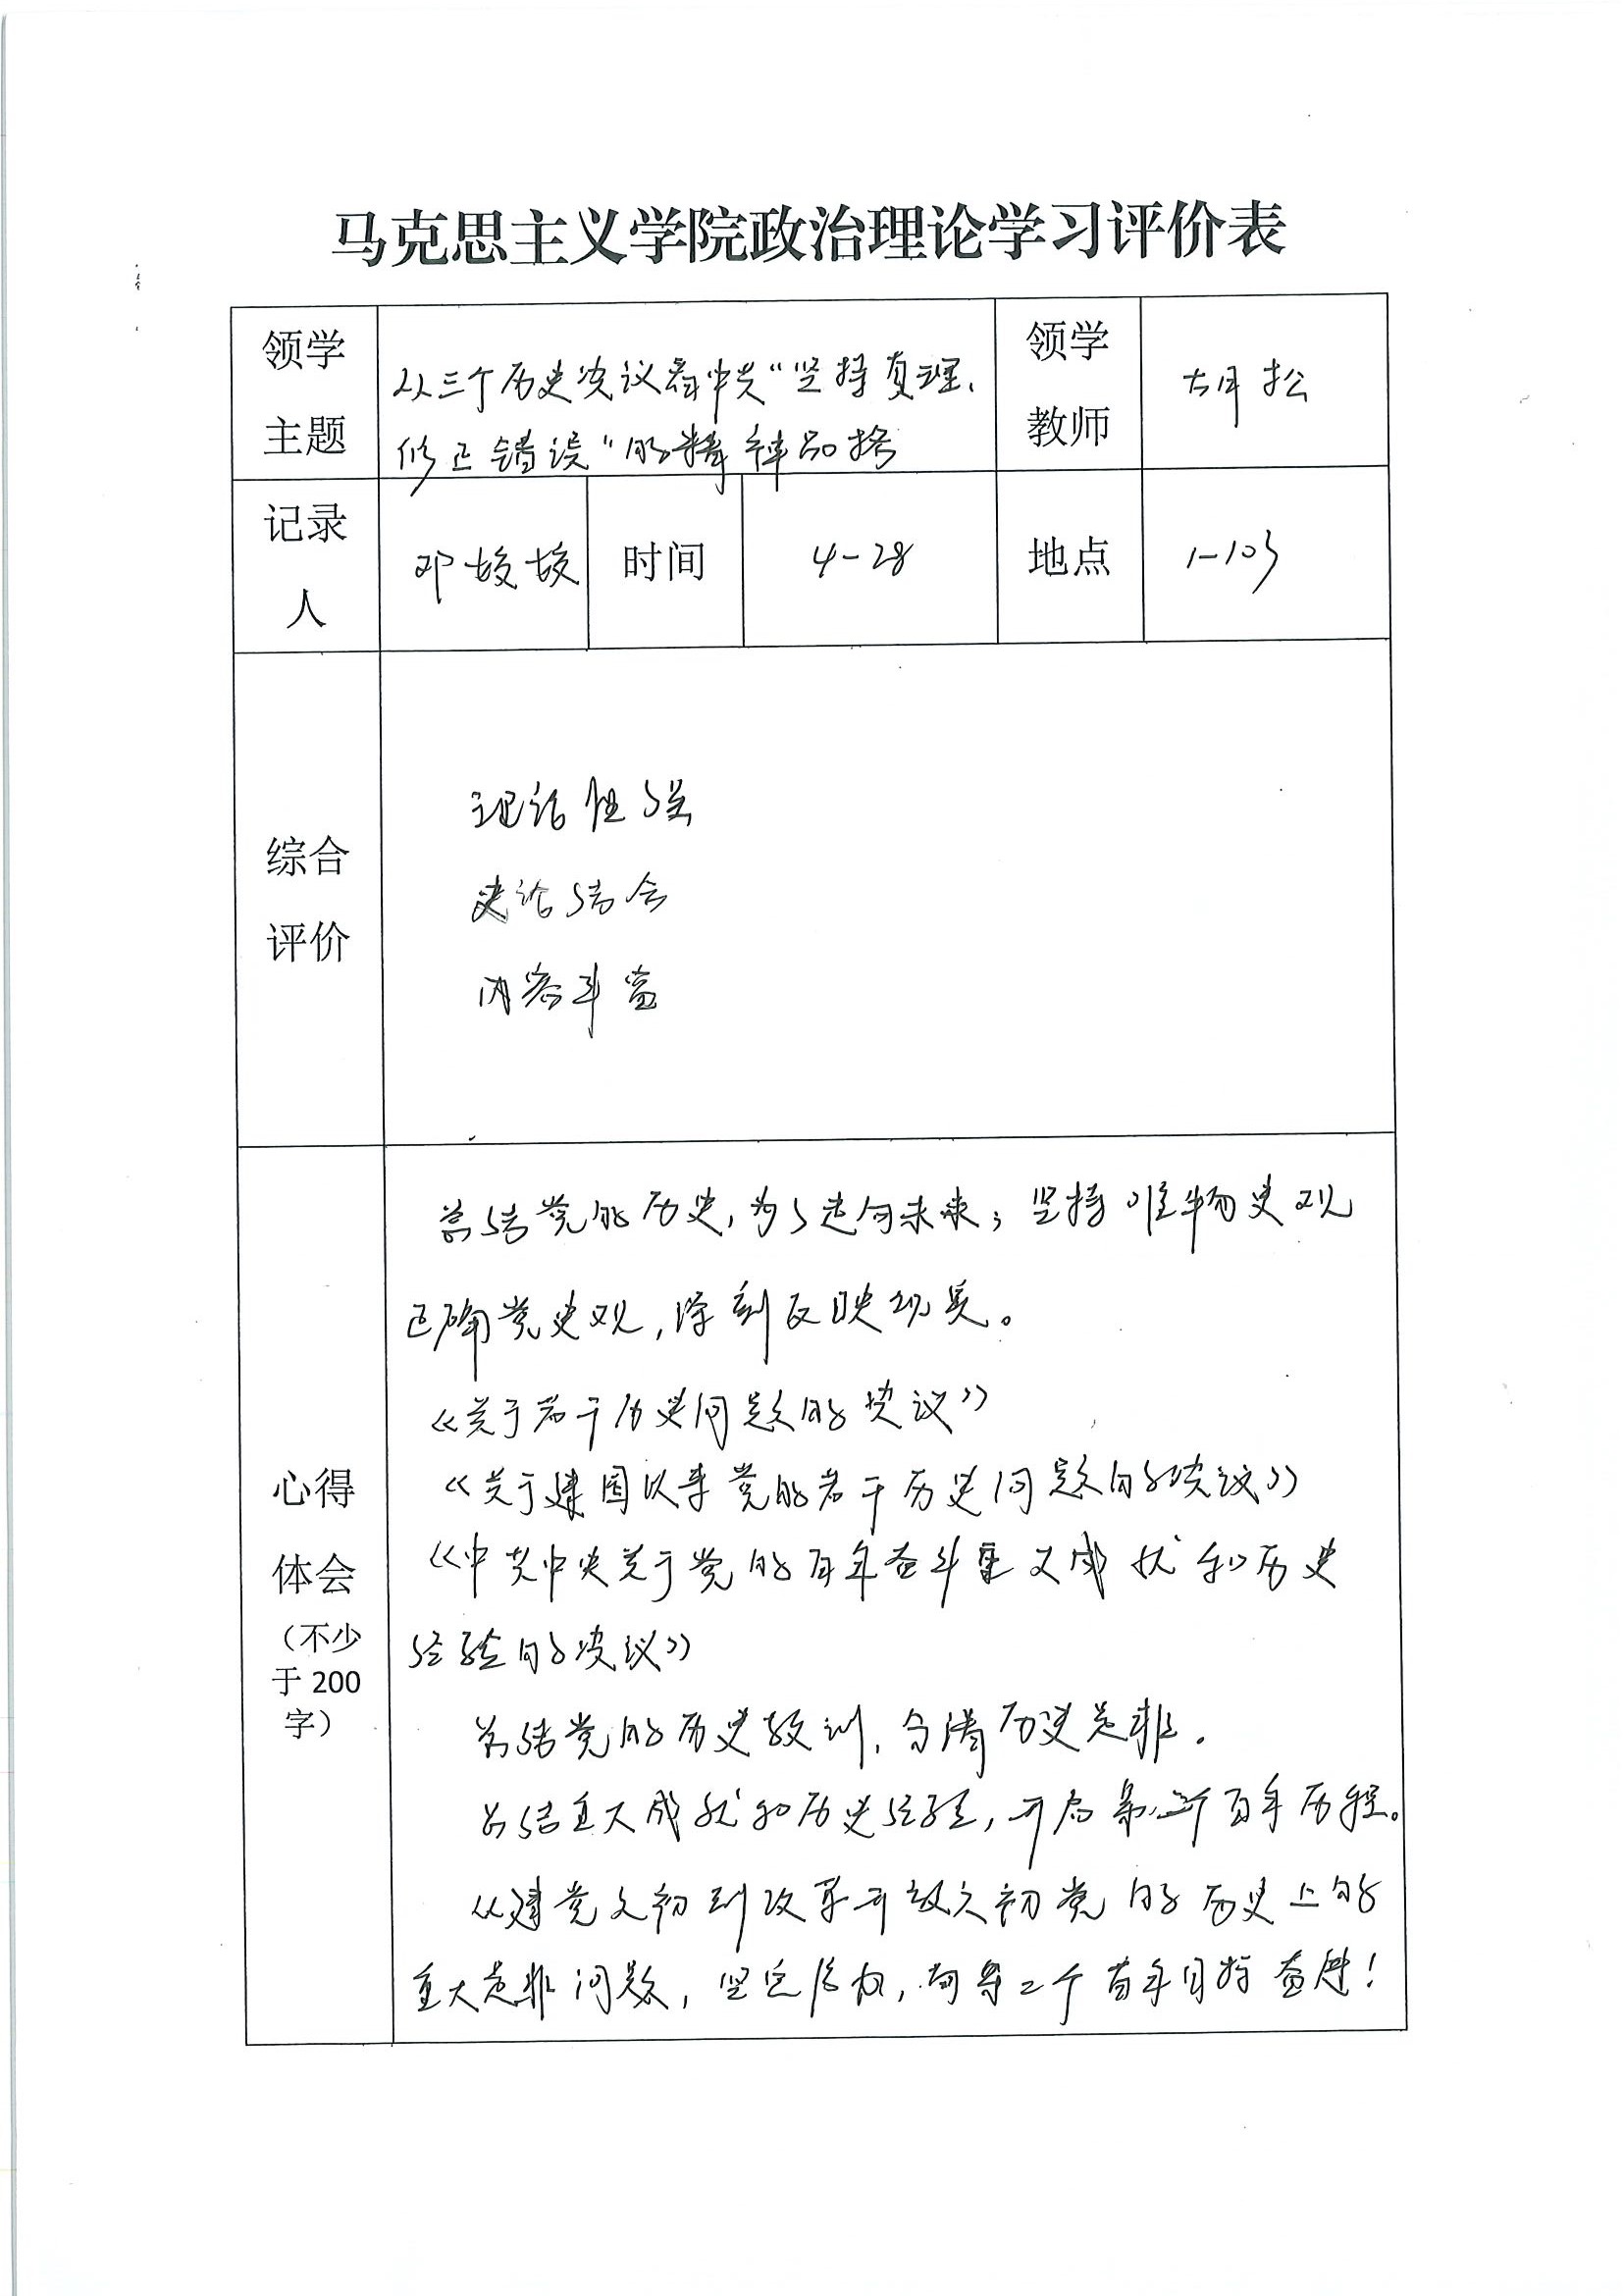 马克思主义学院政治理论学习评价表
领学
主题
从三个历史决议看中共“坚持真理、
修正错误”的精神品格
领学
教师
胡松
记录
人
邓姣姣
时间
4-28
地点
1-103
综合
评价
理论性强
史论结合
内容丰富
心得
体会
(不少
于200
字)
总结党的历史,为了走向未来;坚持唯物史观
正确党史观,深刻反映现实。
《关于若干历史问题的决议》
《关于建国以来党的若干历史问题的决议》
《中共中央关于党的百年奋斗重大成就和历史
经验的决议》
总结党的历史教训,分清历史是非.
总结重大成就和历史经验,开启第二个百年历程。
从建党之初到改革开放之初党的历史上的
重大是非问题,坚定信心,向第二个百年目标奋进!